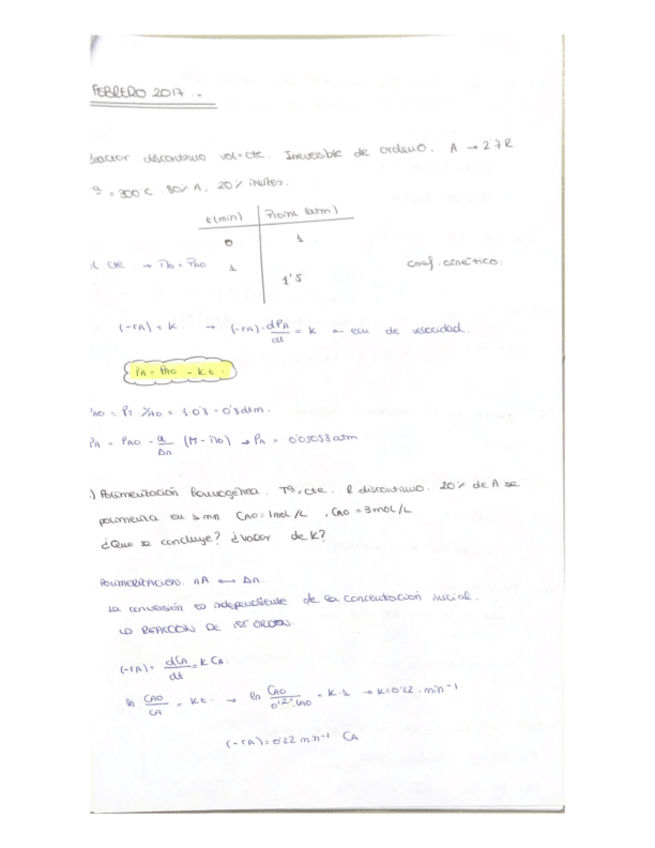 FEBRERO 2017.-
Reactor discontinuo vol=cte. Irreversible de orden 0. A → 2'7R
Tª = 300°C. 80% A, 20% inertes.
t(min) Ptotal (atm)
0 1
Cte → Π0 = PA0 1 1'5 Coef. cinético:
(-rA) = k. → (-rA)= dPA/dt = k ← ecu de velocidad.
PA = PA0 - kt.
PA0 = PT · YA0 = 1·0'8 = 0'8 atm.
PA = PA0 - a/Δn (Π - Π0) → PA =
.) Polimerización homogénea. Tª=cte. R discontinuo. 20% de A se
polimeriza en mn CA0=1mol/L, CA0=3mol/L
¿Que se concluye? ¿Valor de k?
POLIMERIZACION: nA ↔ An.
La conversión es independiente de la concentración inicial.
↳ REACCION DE 1ST ORDEN.
(-rA) = dCA/dt = k CA.
ln CA0/CA = kt. → ln CA0/0'2·CA0 = k· → k=0'22 min-1
(-rA) = 0'22 min-1 CA